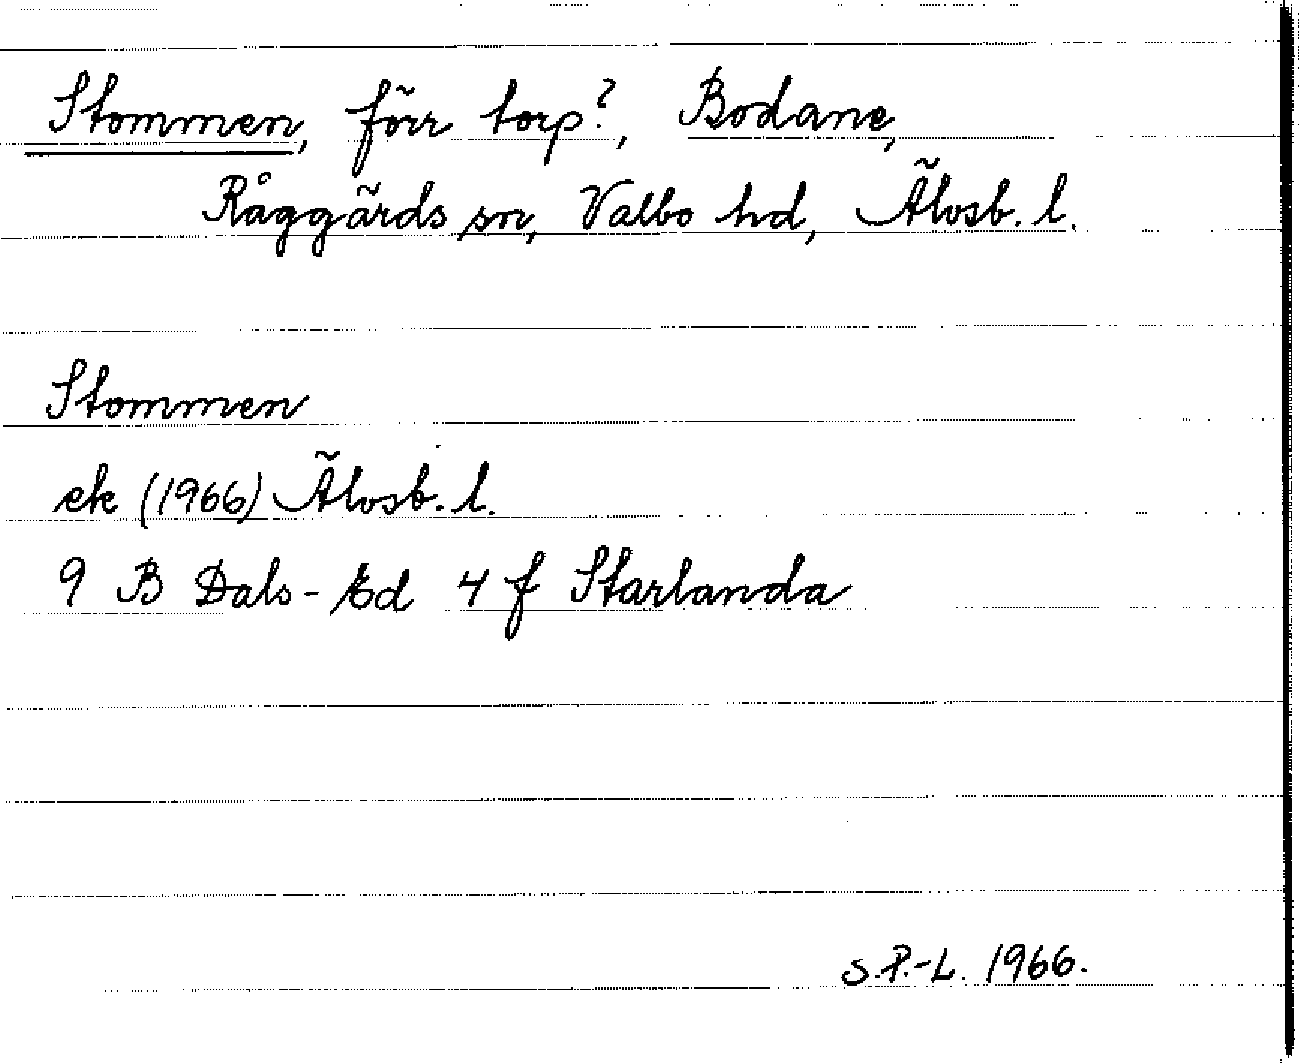 Stommen, förr torp?, Bodane,
Råggärds sn, Valbo hd, Älvsb. l.
Stommen
ek (1966) Älvsb. l.
9 B Dals-Ed 4 f Starlanda
S.P.-L. 1966.